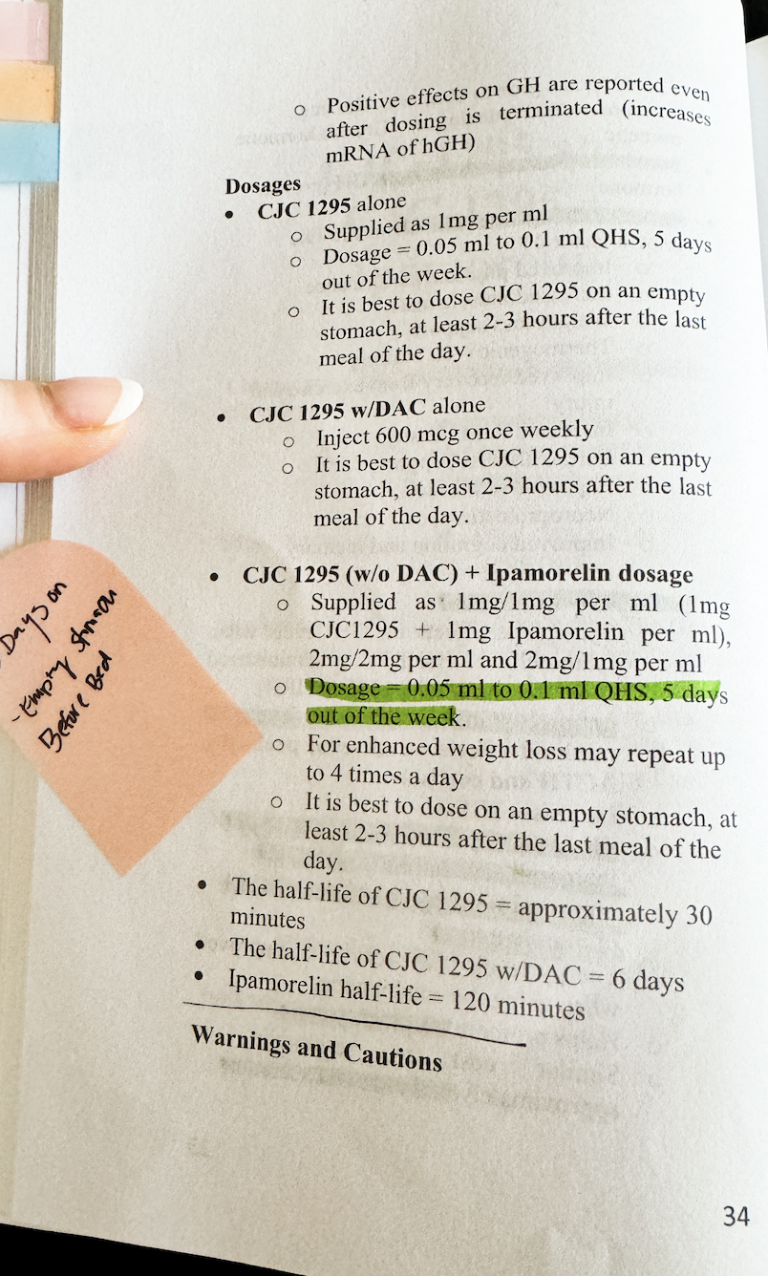 ○ Positive effects on GH are reported even
after dosing is terminated (increases
mRNA of hGH)
Dosages
• CJC 1295 alone
○ Supplied as 1mg per ml
○ Dosage = 0.05 ml to 0.1 ml QHS, 5 days
out of the week.
○ It is best to dose CJC 1295 on an empty
stomach, at least 2-3 hours after the last
meal of the day.
• CJC 1295 w/DAC alone
○ Inject 600 mcg once weekly
○ It is best to dose CJC 1295 on an empty
stomach, at least 2-3 hours after the last
meal of the day.
• CJC 1295 (w/o DAC) + Ipamorelin dosage
○ Supplied as 1mg/1mg per ml (1mg
CJC1295 + 1mg Ipamorelin per ml),
2mg/2mg per ml and 2mg/1mg per ml
○ Dosage = 0.05 ml to 0.1 ml QHS, 5 days
out of the week.
○ For enhanced weight loss may repeat up
to 4 times a day
○ It is best to dose on an empty stomach, at
least 2-3 hours after the last meal of the
day.
• The half-life of CJC 1295 = approximately 30
minutes
• The half-life of CJC 1295 w/DAC = 6 days
• Ipamorelin half-life = 120 minutes
Warnings and Cautions
34
Days on
-Empty
Before Bed